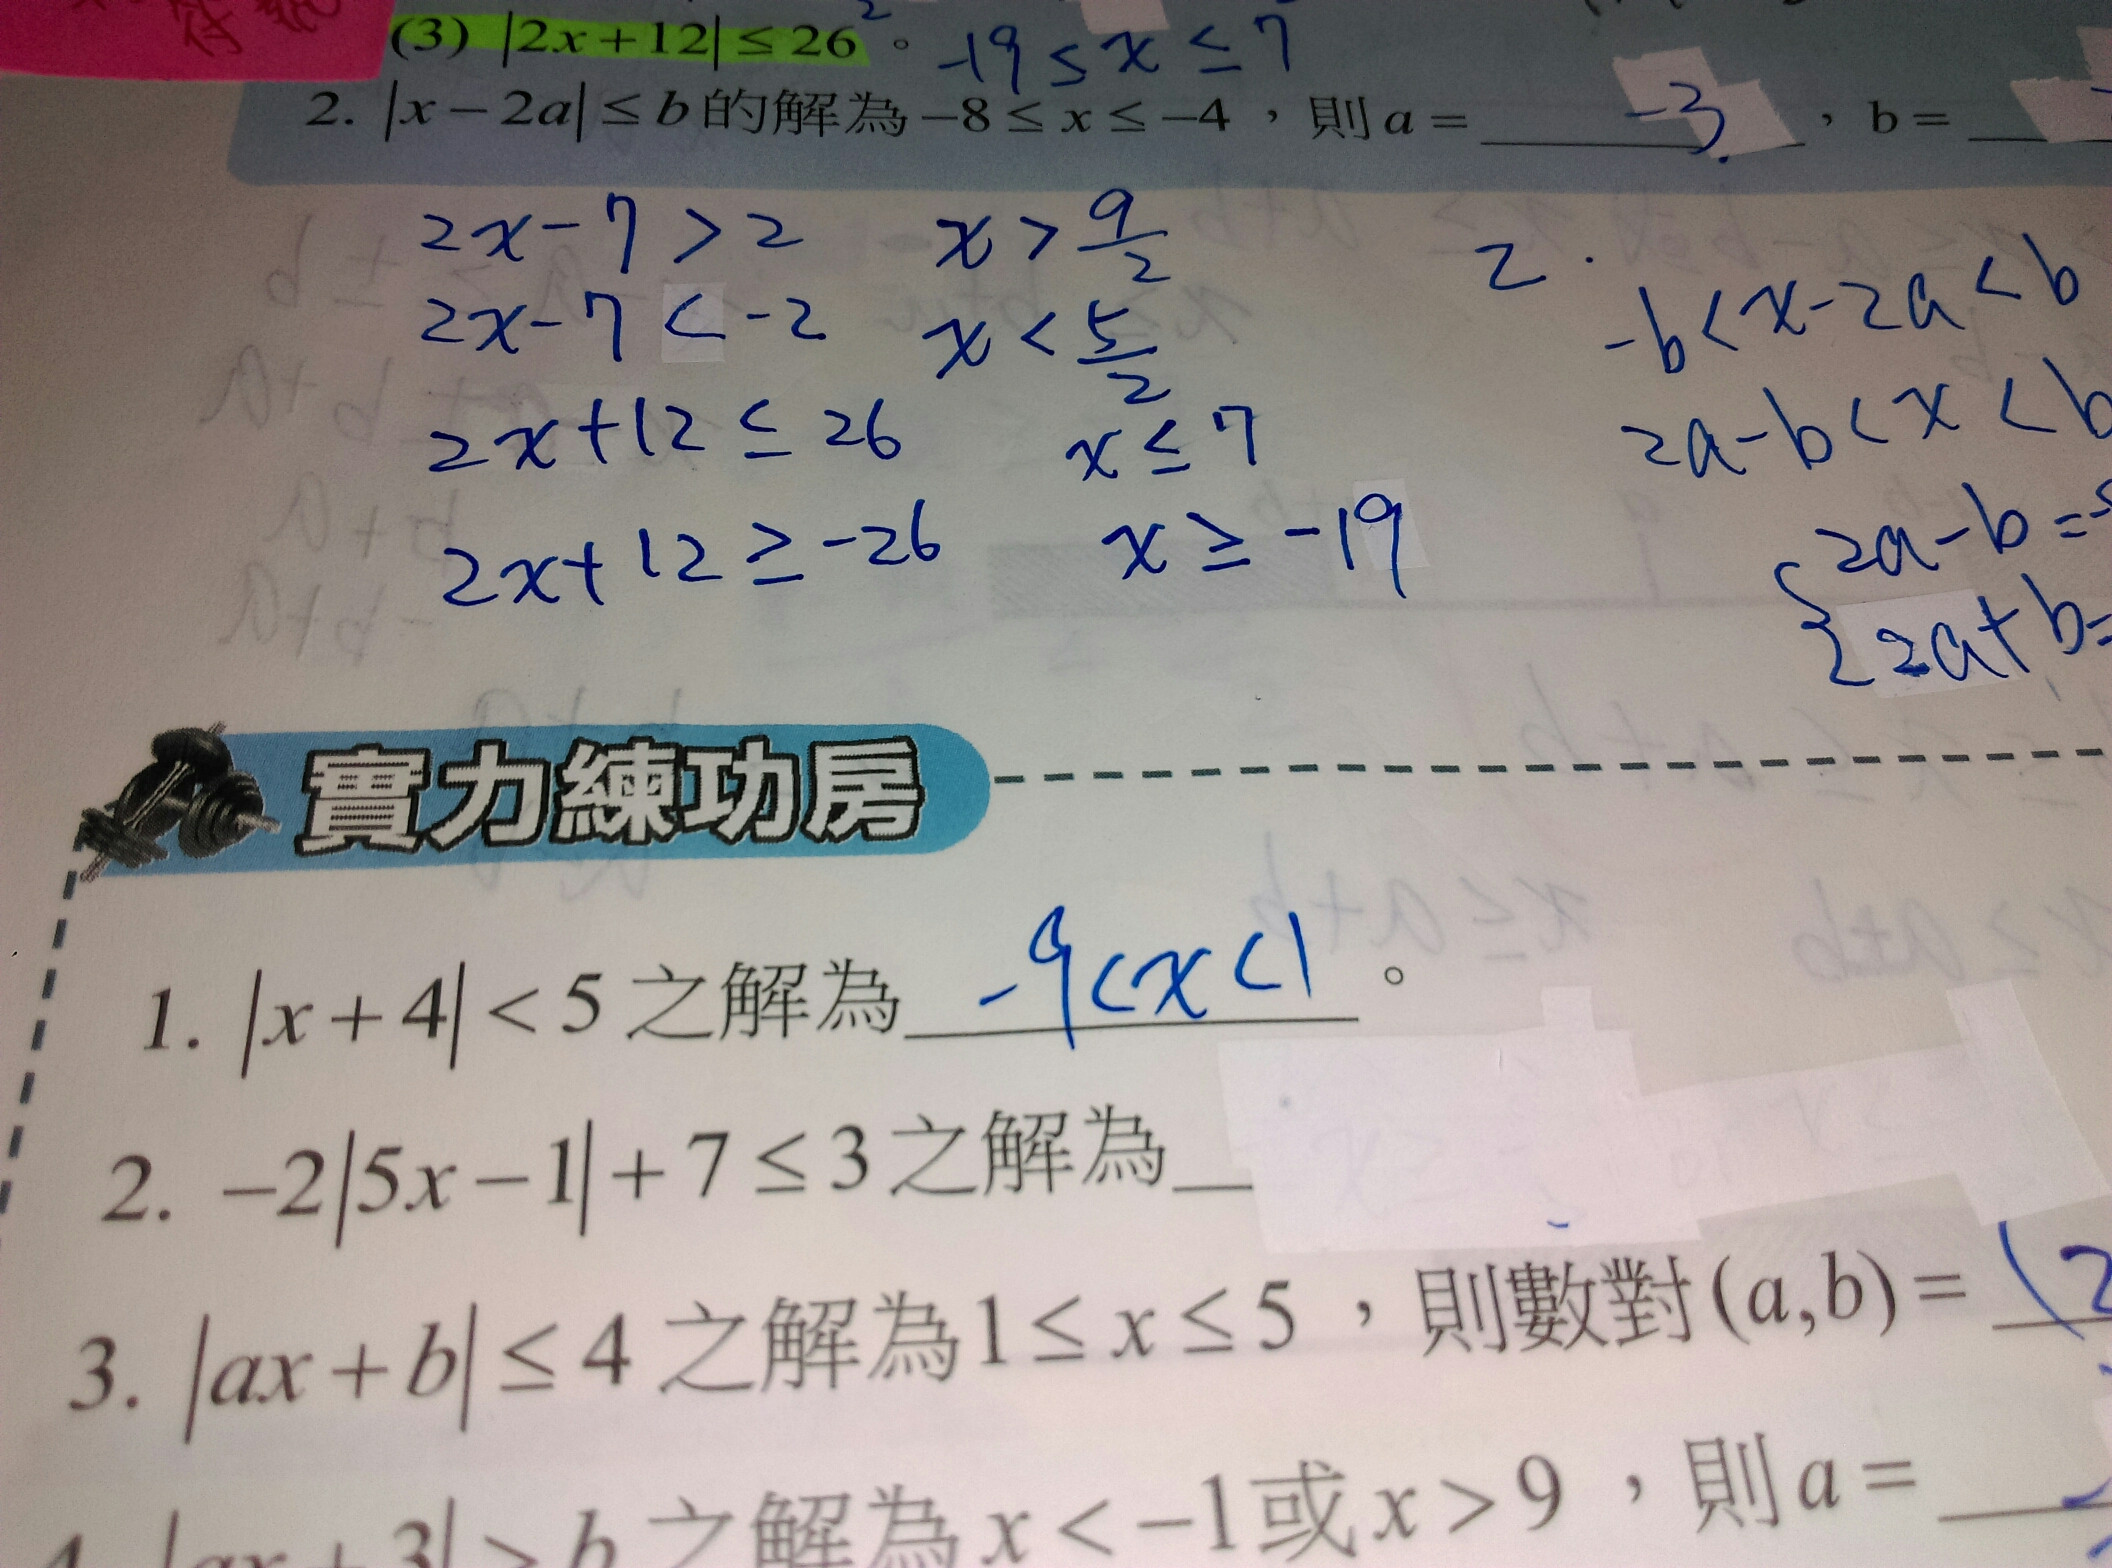 (3) |2x+12| ≤ 26。 -19 ≤ x ≤ 7
2. |x-2a| ≤ b 的解為 -8 ≤ x ≤ -4，則 a = -3，b =
2x-7 > 2 x > 9/2
2x-7 < -2 x < 5/2
2x+12 ≤ 26 x ≤ 7
2x+12 ≥ -26 x ≥ -19
2.
-b < x-2a < b
2a-b < x < b
2a-b =
2a+b =
實力練功房
1. |x+4| < 5 之解為 -9 < x < 1。
2. -2|5x-1|+7 ≤ 3 之解為
3. |ax+b| ≤ 4 之解為 1 ≤ x ≤ 5，則數對(a,b) = (2
4. |ax+3| > b 之解為 x < -1 或 x > 9，則 a =